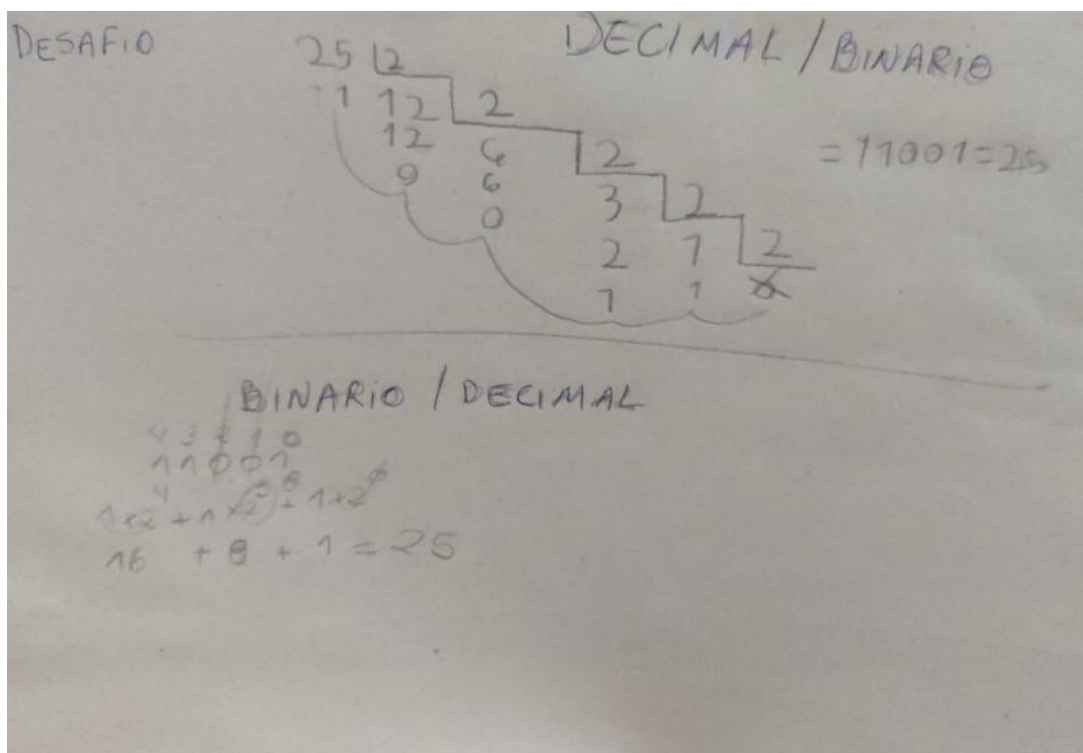 DESAFIO
DECIMAL / BINARIO
25 2
1 12 2
12 6 2
0 6 3 2
0 2 1 2
1 1 0
= 11001 = 25
BINARIO / DECIMAL
4 3 2 1 0
11001
16 + 8 + 1 = 25